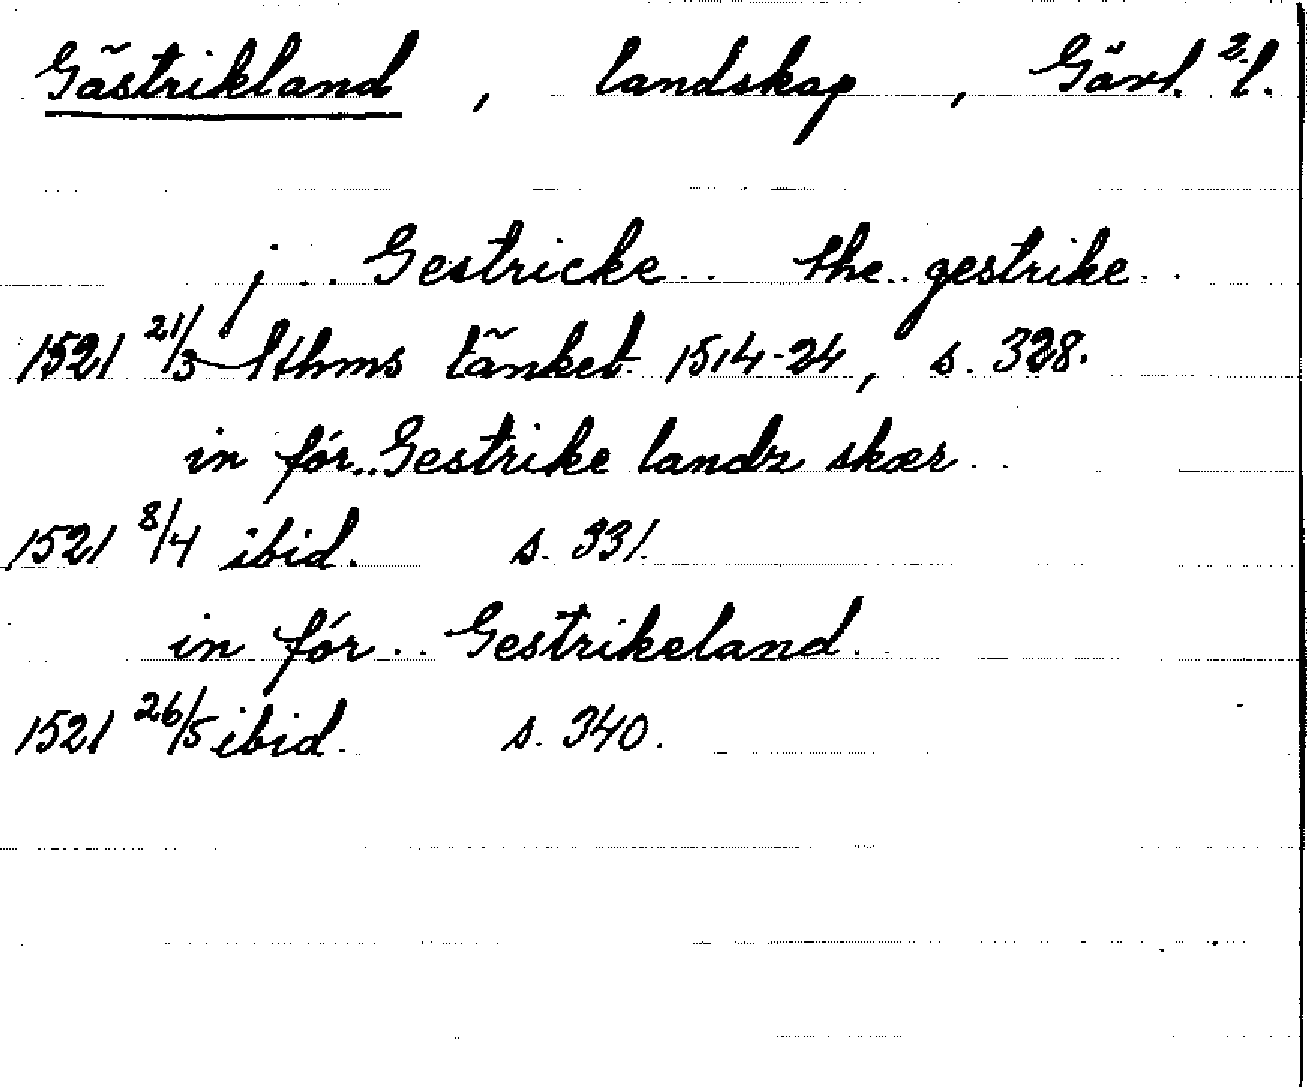 Gästrikland, landskap, Gävl. 2 l.
j Gestricke the gestrike
1521 21/3 Sthms tänket 1514-24, s. 328.
in fór Gestrike landz skær
1521 8/4 ibid. s. 331.
in fór Gestrikeland
1521 26/5 ibid. s. 340.